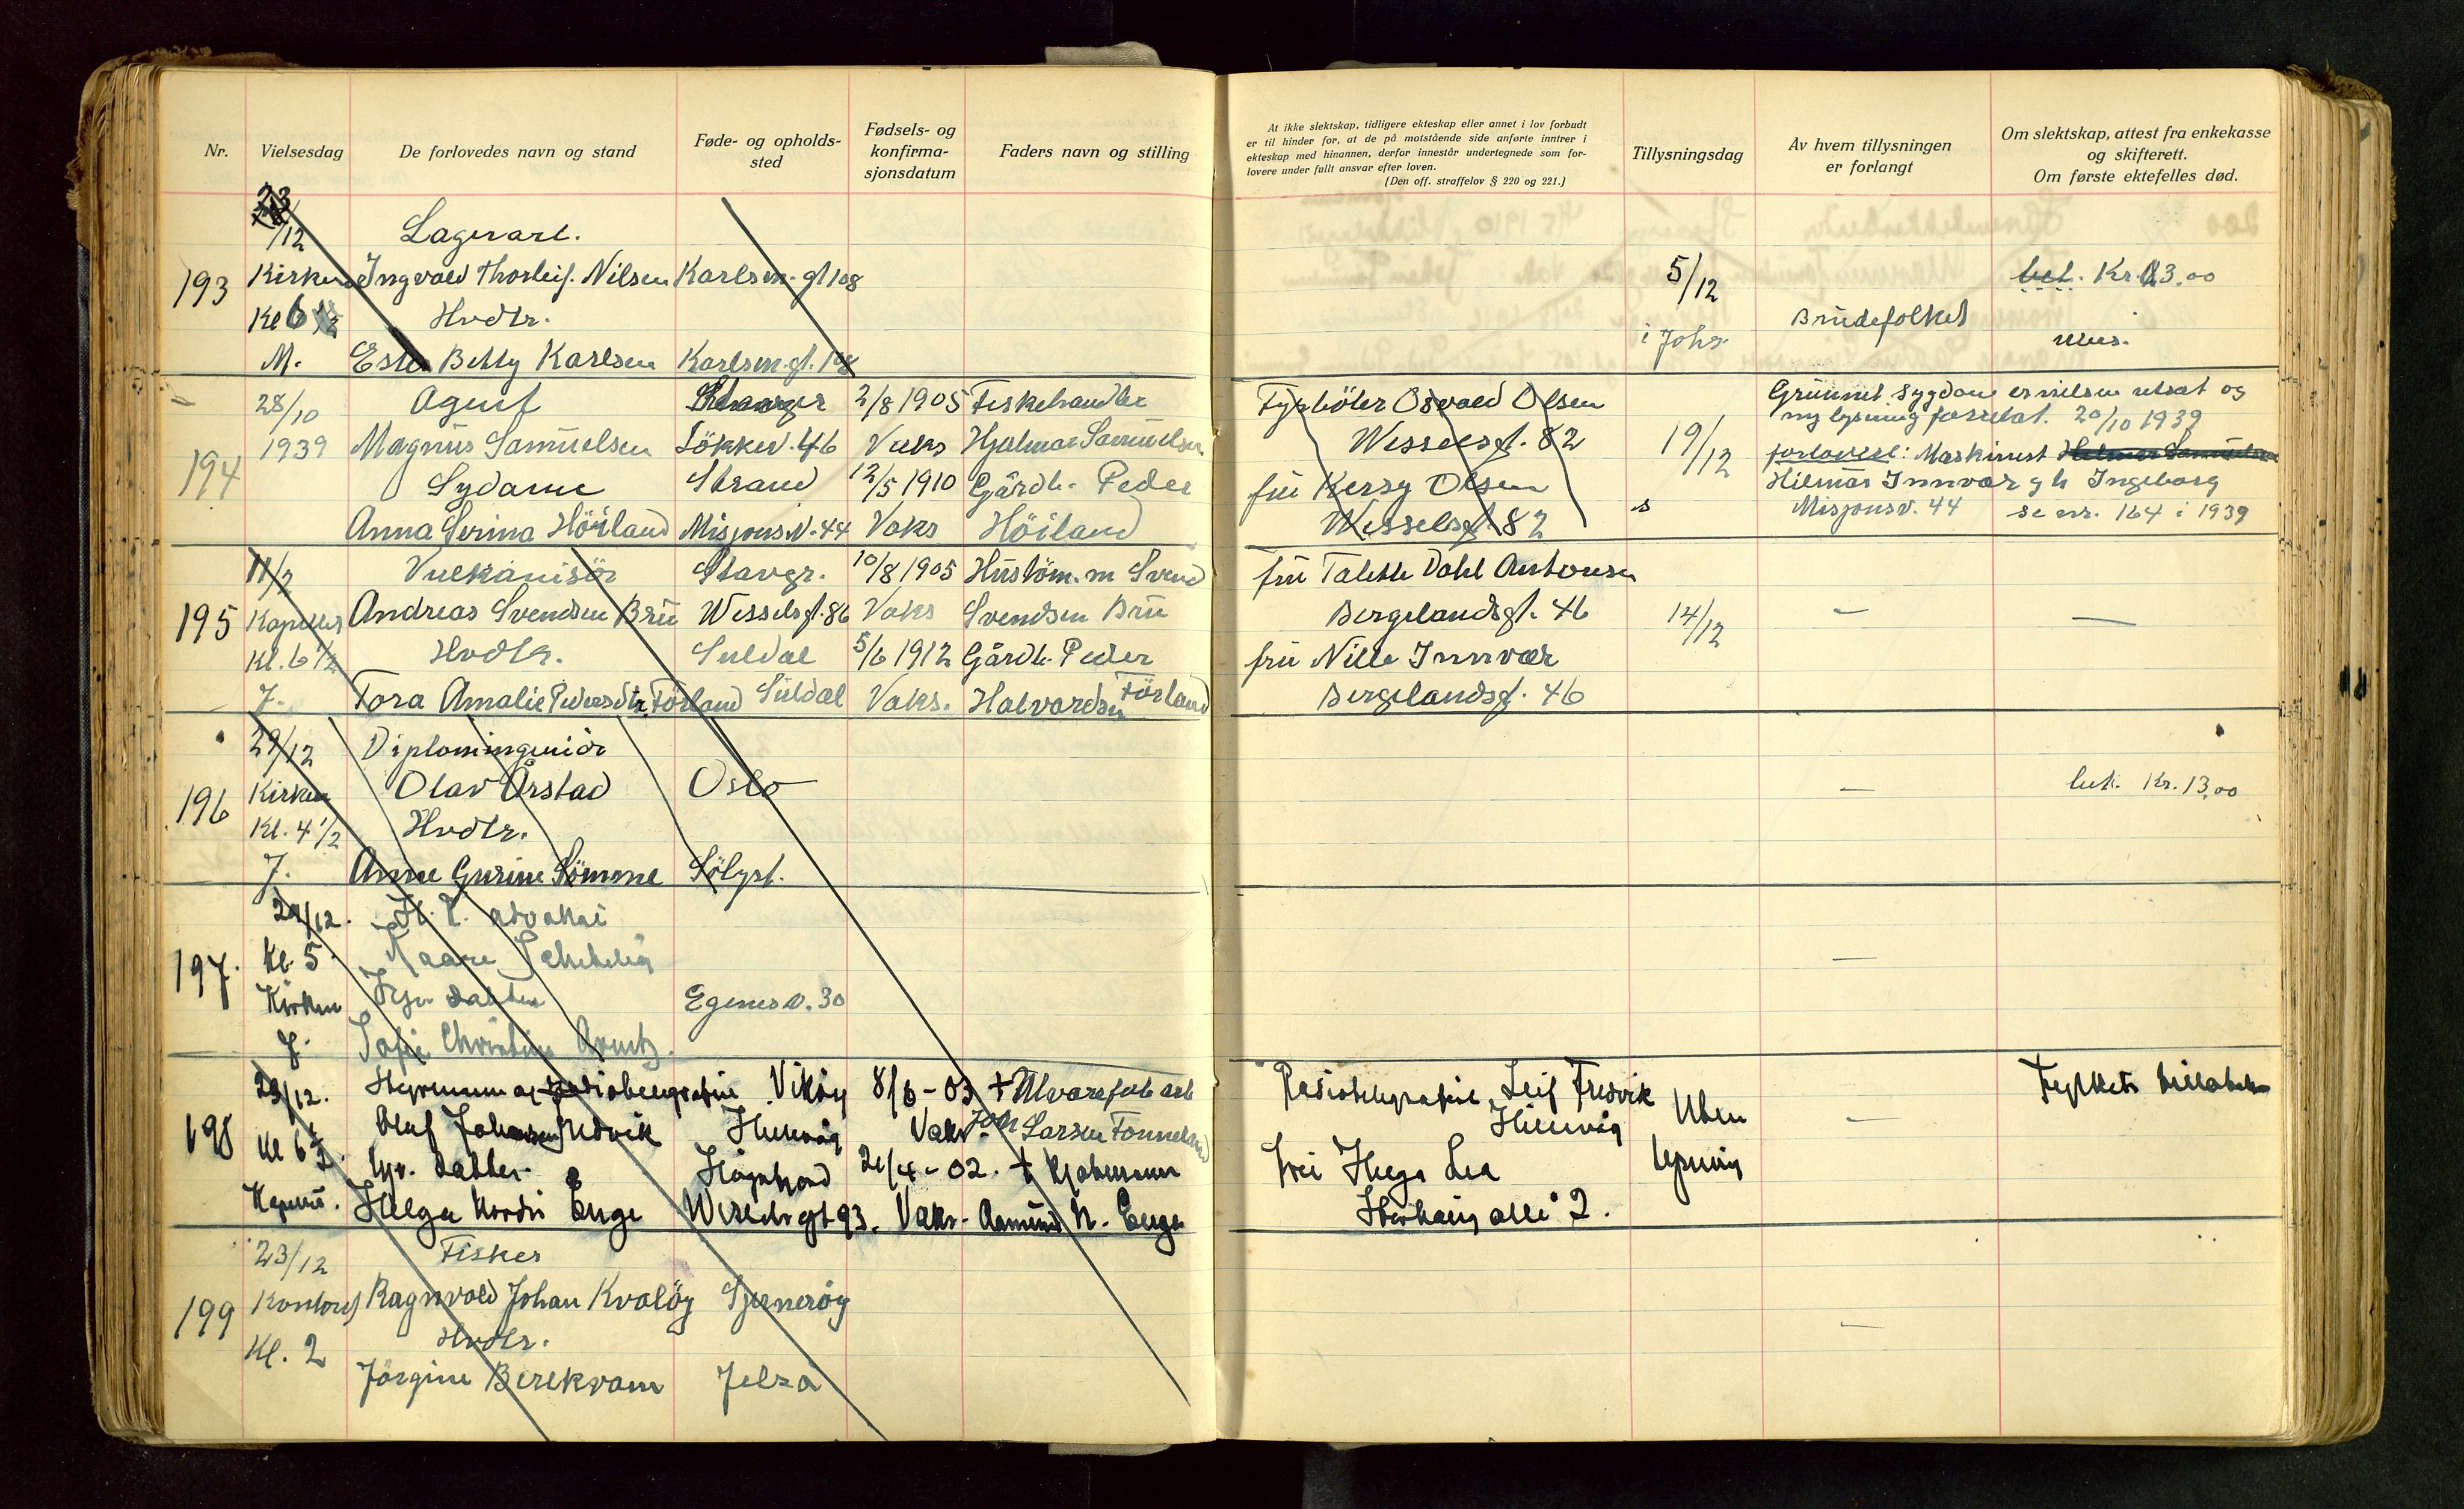 Nr.
Vielsesdag
De forlovedes navn og stand
Føde- og opholds-
sted
Fødsels- og
konfirma-
sjonsdatum
Faders navn og stilling
At ikke slektskap, tidligere ekteskap eller annet i lov forbudt
er til hinder for, at de på motstående side anførte inntrer i
ekteskap med hinannen, derfor innestår undertegnede som for-
lovere under fullt ansvar efter loven.
(Den off. straffelov § 220 og 221.)
Tillysningsdag
Av hvem tillysningen
er forlangt
Om slektskap, attest fra enkekasse
og skifterett.
Om første ektefelles død.
193
23/12
Kirken
Kl 6
M.
Lagerarb.
Ingvald Thorleif. Nilsen Karlsm. gt 108
Hvdtr.
Ester Betty Karlsen Karlsm. gt. 108
5/12
i Johs
Brudefolket
bet. Kr. 13.00
194
28/10
1939
Agent
Magnus Samuelsen
Sydame
Anna Serina Höiland
Stavanger
Lökkev. 46
Strand
Misjonsv. 44
2/8 1905
Vaks
12/5 1910
Vaks
Fiskehandler
Hjalmar Samuelsen
Gårdb. Peder
Höiland
Osvald Olsen
Wesselsgt. 82
fru Kersy Olsen
Wesselsgt 82
19/12
s
Grunnet sygdom er vielsen utsat og
ny lysning forretat. 20/10 1939
forlovere: Maskinist
Hilmar Innvær g h Ingeborg
Misjonsv. 44 se nr. 164 i 1939
195
11/2
Kapellet
Kl. 6 1/2
J.
Vulkanisör
Andreas Svendsen Bru
Hvdtr.
Tora Amalie Pedersdtr. Förland
Stavgr.
Wesselsgt. 86
Suldal
Suldal
10/8 1905
Vaks
5/6 1912
Vaks.
Hustöm. m Svend
Svendsen Bru
Gårdb. Peder
Halvardsen Förland
fru Talette Dahl Antonsen
Bergelandsgt. 46
fru Nille Innvær
Bergelandsgt. 46
14/12
—
—
196
29/12
Kirken
Kl. 4 1/2
J.
Diplomingeniör
Olav Årstad
Hvdtr.
Anne Gurine Sömme
Oslo
Sölvgt.
—
bet. Kr. 13.00
197.
29/12.
Kl. 5.
Kirken
J.
Kaare
Sofie Christine Arentz.
Egenesv. 30
—
198
23/12.
Kl 6 1/2.
Kapell.
Styrmann og radiotelegrafist
Olaf Johannes Fredvik
Helga Kordri Enge
Viköy
Hillevåg
Högsfjord
Wesselsgt 93.
8/6 - 03
Vaks.
21/4 - 02.
Vaks.
Larsen Tonneland
Aamund N. Enge
Radiotelegrafist Leif Fredvik
Hillevåg
Frü Helga Lea
allé 2.
Uten
lysning
—
199
23/12
Kontoret
Kl. 2
Fisker
Ragnvald Johan Kvalöy
Hvdtr.
Jörgine Berekvam
Sjernerøy
Jelsa
—